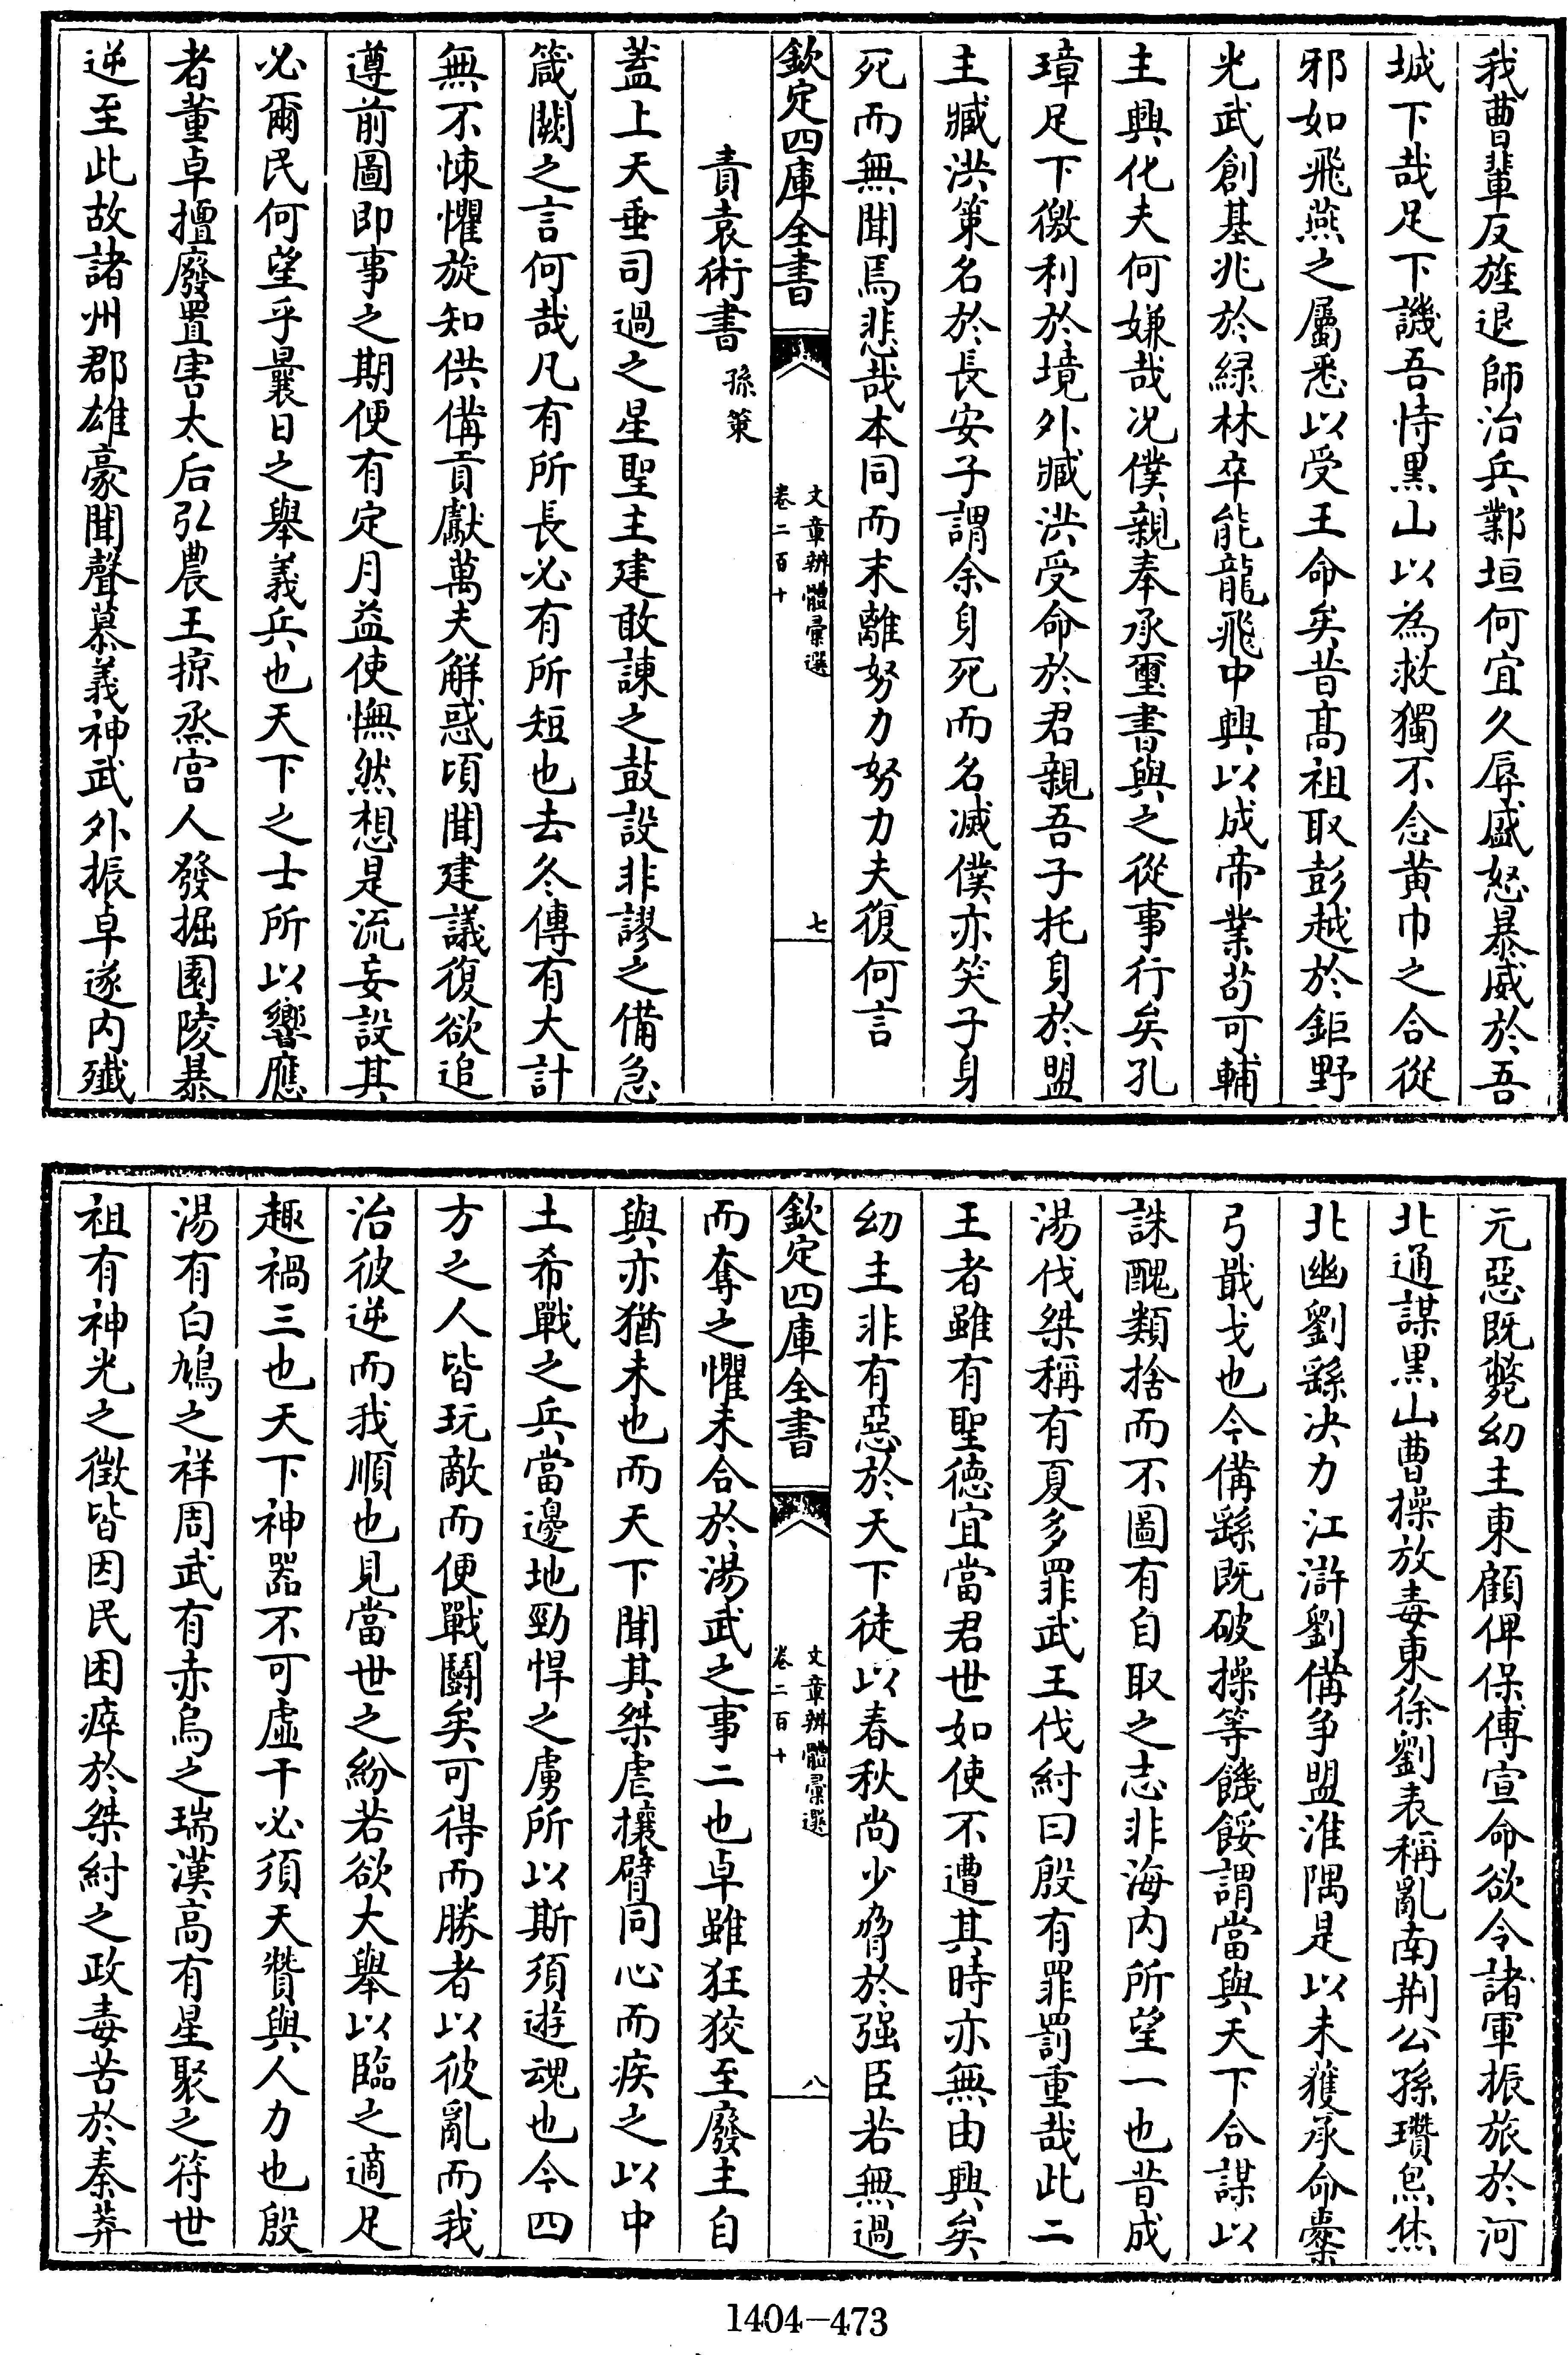 我曹輩反旌退師治兵鄴垣何宜久辱盛怒暴威於吾
城下哉足下譏吾恃黒山以為救獨不念黄巾之合從
邪如飛燕之屬悉以受王命矣昔髙祖取彭越於鉅野
光武創基兆於緑林卒能龍飛中興以成帝業茍可輔
主興化夫何嫌哉况僕親奉承璽書與之從事行矣孔
璋足下徼利於境外臧洪受命於君親吾子托身於盟
主臧洪策名於長安子謂余身死而名滅僕亦笑子身
死而無聞焉悲哉本同而末離努力努力夫復何言
欽定四庫全書
文章辨體彚選
卷二百十
七
責袁術書 孫策
蓋上天垂司過之星聖主建敢諫之鼓設非謬之備急
箴闕之言何哉凡有所長必有所短也去冬傳有大計
無不悚懼旋知供備貢獻萬夫解惑頃聞建議復欲追
遵前圖即事之期便有定月益使憮然想是流妄設其
必爾民何望乎曩日之舉義兵也天下之士所以響應
者董卓擅廢置害太后弘農王掠烝宫人發掘園陵暴
逆至此故諸州郡雄豪聞聲慕義神武外振卓遂内殱
元惡既斃幼主東顧俾保傅宣命欲令諸軍振旅於河
北通謀黒山曹操放毒東徐劉表稱亂南荆公孫瓚炰烋
北幽劉繇決力江滸劉備争盟淮隅是以未獲承命櫜
弓戢戈也今備繇既破操等饑餒謂當與天下合謀以
誅醜類捨而不圖有自取之志非海内所望一也昔成
湯伐桀稱有夏多罪武王伐紂曰殷有罪罰重哉此二
王者雖有聖徳宜當君世如使不遭其時亦無由興矣
幼主非有惡於天下徒以春秋尚少脅於强臣若無過
欽定四庫全書
文章辨體彚選
卷二百十
八
而奪之懼未合於湯武之事二也卓雖狂狡至廢主自
與亦猶未也而天下聞其桀虐攘臂同心而疾之以中
土希戰之兵當邊地勁悍之虜所以斯須遊魂也今四
方之人皆玩敵而便戰鬪矣可得而勝者以彼亂而我
治彼逆而我順也見當世之紛若欲大舉以臨之適足
趣禍三也天下神器不可虚干必須天贊與人力也殷
湯有白鳩之祥周武有赤烏之瑞漢髙有星聚之符世
祖有神光之徴皆因民困瘁於桀紂之政毒苦於秦莽
1404-473